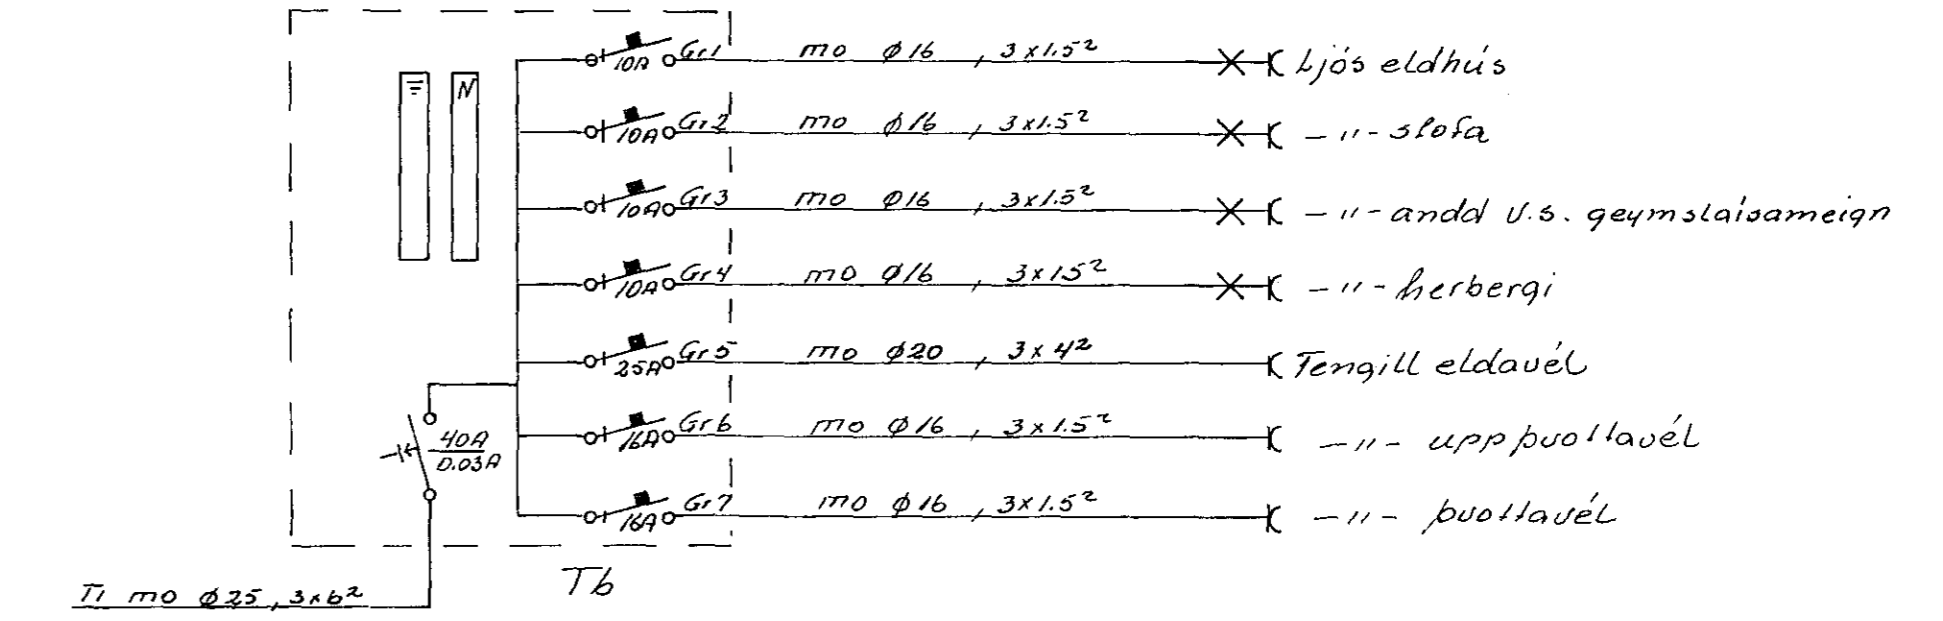 10A Gr1 mo ø16, 3x1.5² Ljós eldhús
N
10A Gr2 mo ø16, 3x1.5² -"- stofa
10A Gr3 mo ø16, 3x1.5² -"- andd V.s. geymslaísameign
10A Gr4 mo ø16, 3x1.5² -"- herbergi
25A Gr5 mo ø20, 3x4² Tengill eldavél
40A
0.03A
16A Gr6 mo ø16, 3x1.5² -"- uppþvottavél
16A Gr7 mo ø16, 3x1.5² -"- þvottavél
Tb
Ti mo ø25, 3x6²